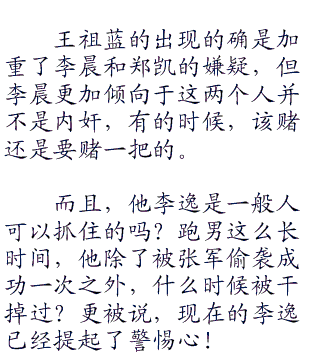 王祖蓝的出现的确是加
重了李晨和郑凯的嫌疑，但
李晨更加倾向于这两个人并
不是内奸，有的时候，该赌
还是要赌一把的。
而且，他李逸是一般人
可以抓住的吗？跑男这么长
时间，他除了被张军偷袭成
功一次之外，什么时候被干
掉过？更被说，现在的李逸
已经提起了警惕心！